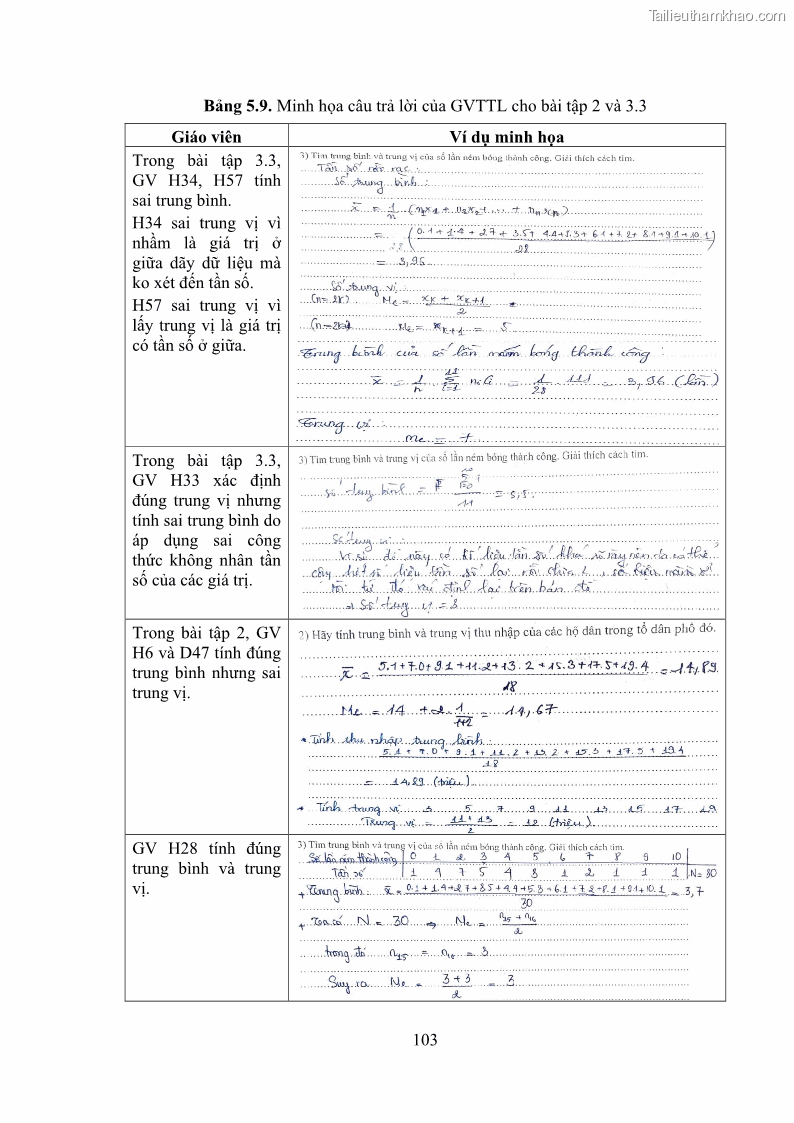 Tailieuthamkhao.com
Bảng 5.9. Minh họa câu trả lời của GVTTL cho bài tập 2 và 3.3
Giáo viên
Ví dụ minh họa
Trong bài tập 3.3,
GV H34, H57 tính
sai trung bình.
H34 sai trung vị vì
nhầm là giá trị ở
giữa dãy dữ liệu mà
ko xét đến tần số.
H57 sai trung vị vì
lấy trung vị là giá trị
có tần số ở giữa.
3) Tìm trung bình và trung vị của số lần ném bóng thành công. Giải thích cách tìm.
Tần số rời rạc :
Số trung bình :
x̄ = 1/n (n₁x₁ + n₂x₂ + ... + nₙxₙ)
= (0.1 + 1.4 + 2.7 + 3.5 + 4.4 + 5.3 + 6.1 + 7.2 + 8.1 + 9.1 + 10.1)
28
= 3,96
Số trung vị :
(n = 2k) Me = (x_k + x_k+1)/2
Me = x_k+1 = 5
Trung bình của số lần ném bóng thành công :
= 1/28 . 111 = 3,96 (lần)
Trung vị :
Me =
Trong bài tập 3.3,
GV H33 xác định
đúng trung vị nhưng
tính sai trung bình do
áp dụng sai công
thức không nhân tần
số của các giá trị.
3) Tìm trung bình và trung vị của số lần ném bóng thành công. Giải thích cách tìm.
Số trung bình =
11
Số trung vị :
Vì số
→ Số trung vị = 3
Trong bài tập 2, GV
H6 và D47 tính đúng
trung bình nhưng sai
trung vị.
2) Hãy tính trung bình và trung vị thu nhập của các hộ dân trong tổ dân phố đó.
x̄ = (5.1+7.0+9.1+11.2+13.2+15.3+17.5+19.4)/18 = 14,89
Me = 14 + 2.1/(1+2) = 14,67
* Tính thu nhập trung bình :
5.1 + 7.0 + 9.1 + 11.2 + 13.2 + 15.3 + 17.5 + 19.4
18
= 14,89 (triệu)
* Tính trung vị 3 5 7 9 11 13 15 17 19
Trung vị = (11+13)/2 = 12 (triệu)
GV H28 tính đúng
trung bình và trung
vị.
3) Tìm trung bình và trung vị của số lần ném bóng thành công. Giải thích cách tìm.
Số lần ném thành công 0 1 2 3 4 5 6 7 8 9 10
Tần số 1 4 7 5 4 3 1 2 1 1 1 N=30
+ Trung bình: x̄ = (0.1+1.4+2.7+3.5+4.4+5.3+6.1+7.2+8.1+9.1+10.1)/30 = 3,7
+ Ta có N = 30 → Me = (n₁₅ + n₁₆)/2
trong đó n₁₅ = n₁₆ = 3
Suy ra Me = (3+3)/2 = 3
103